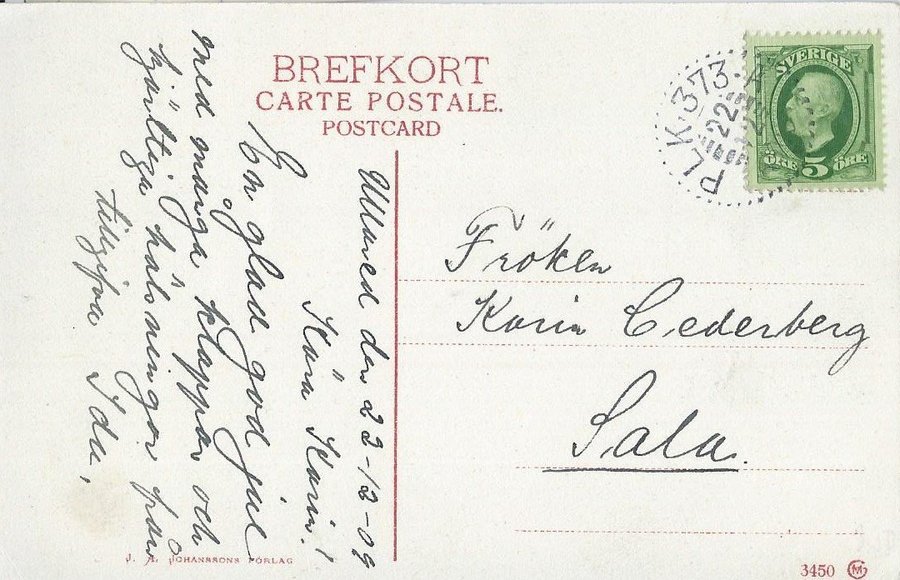 BREFKORT
CARTE POSTALE.
POSTCARD
SVERIGE
ÖRE 5 ÖRE
PLK. 373. A
22
12
Ullared den 22-12-09
Kära Karin!
En glad god jul
med många klappar och
hjärtliga hälsningar från
tillgifna Ida.
Fröken
Karin Cederberg
Sala.
J. A. JOHANSSONS FÖRLAG
3450